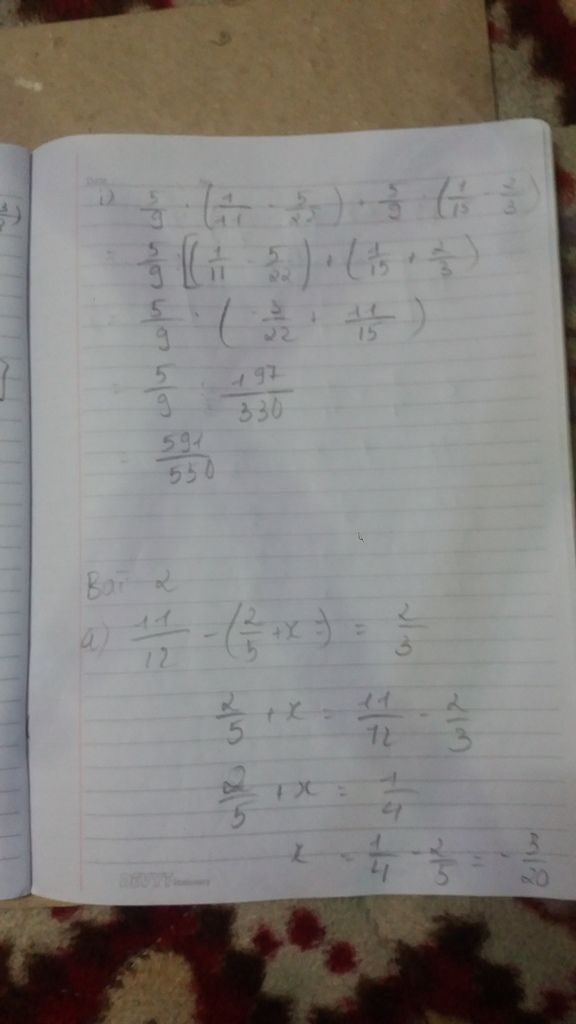 i) 5/9 : (1/11 - 5/22) + 5/9 : (1/15 - 2/3)
= 5/9 : [(1/11 - 5/22) + (1/15 + 2/3)
= 5/9 : (- 3/22 + 11/15)
= 5/9 : 197/330
= 591/550
Bài 2
a) 11/12 - (2/5 + x) = 2/3
2/5 + x = 11/12 - 2/3
2/5 + x = 1/4
x = 1/4 - 2/5 = - 3/20